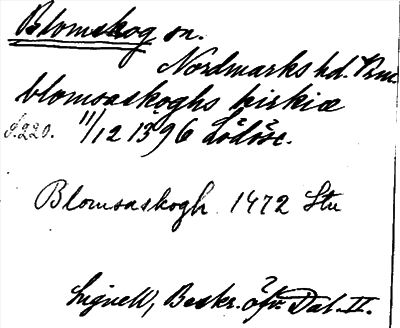 Blomskog sn.
Nordmarks hd. Vrml
blomsaskoghs kirkiæ
11/12 1396 Lödöse.
Blomsaskogh 1472 Stu
Lignell, Beskr. öfv. Dal. II.